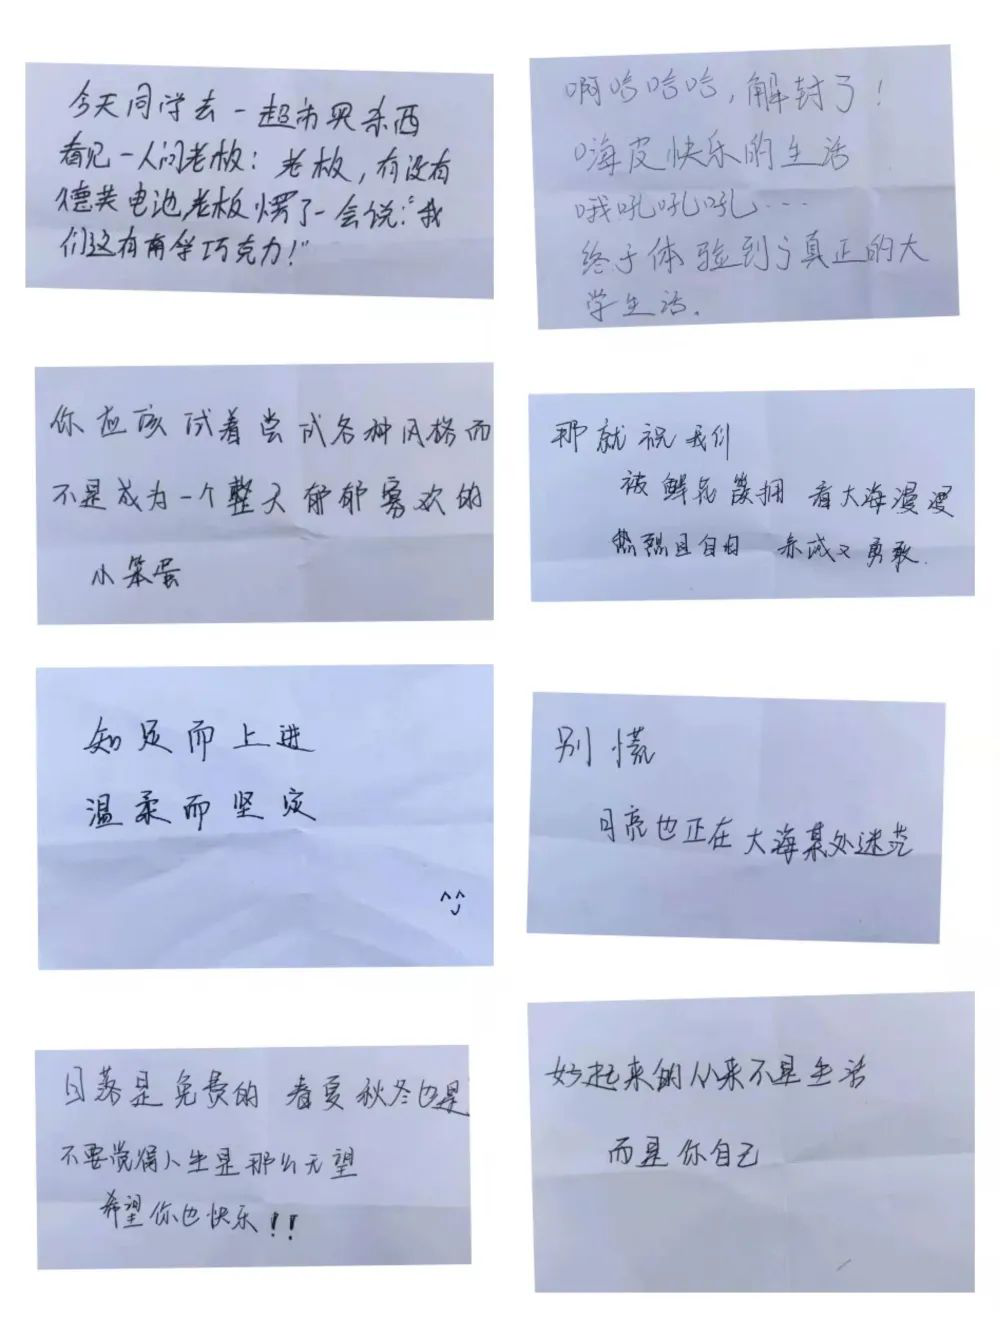 今天同学去一超市买东西
看见一人问老板：老板，有没有
德芙电池,老板愣了一会说:“我
们这有南孚巧克力!”
啊哈哈哈,解封了!
嗨皮快乐的生活
哦吼吼吼···
终于体验到了真正的大
学生活.
你应该试着尝试各种风格而
不是成为一个整天郁郁寡欢的
小笨蛋
那就祝我们
被鲜花簇拥 看大海漫漫
热烈且自由 赤诚又勇敢.
知足而上进
温柔而坚定
别慌
月亮也正在大海某处迷茫
日落是免费的 春夏秋冬也是
不要觉得人生是那么无望
希望你也快乐!!
好起来的从来不是生活
而是你自己